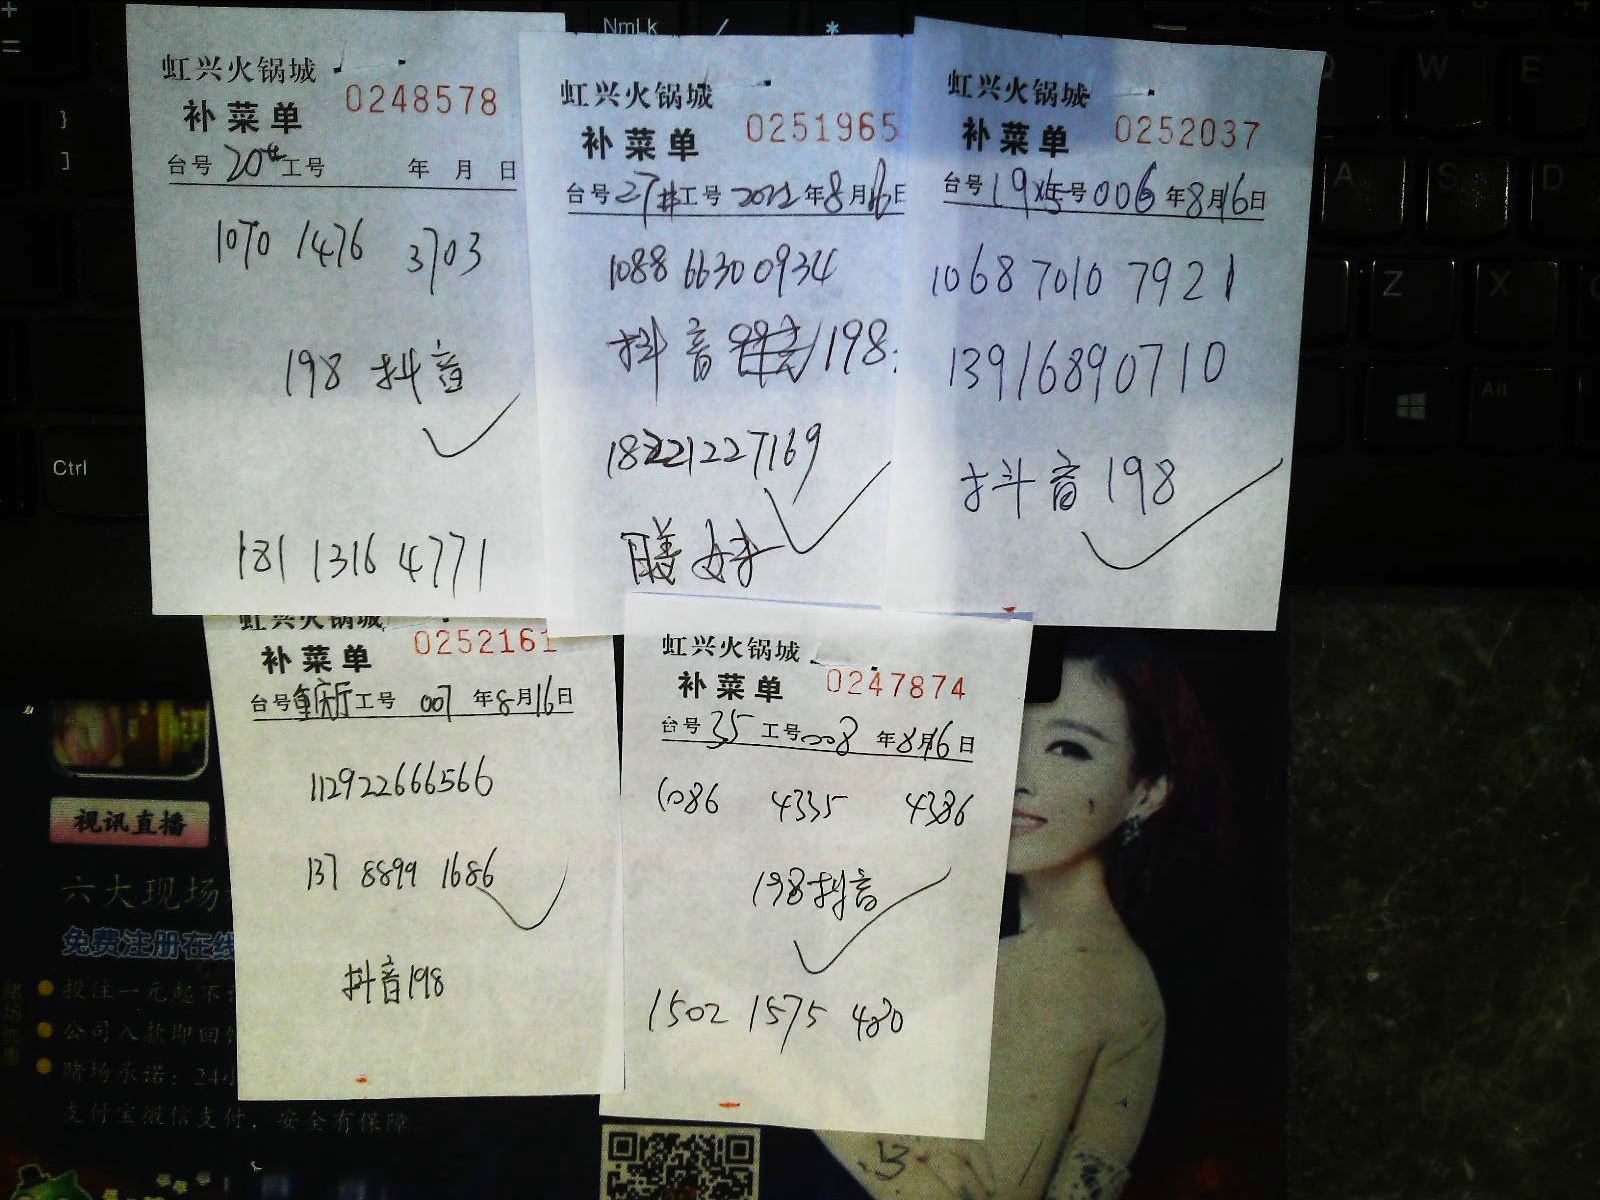 NmLk
虹兴火锅城
补菜单 0248578
台号 20# 工号 年 月 日
1070 1476 3703
198 抖音
181 1316 4771
虹兴火锅城
补菜单 0251965
台号 27# 工号 2022 年 8 月 16 日
1088 6630 0934
抖音 198
18221227169
虹兴火锅城
补菜单 0252037
台号 19 号 006 年 8 月 16 日
1068 7010 7921
13916890710
抖音 198
虹兴火锅城
补菜单 0252161
台号 重庆厅 工号 007 年 8 月 16 日
112922666566
137 8899 1686
抖音198
虹兴火锅城
补菜单 0247874
台号 35 工号 008 年 8 月 16 日
1086 4335 4386
198抖音
1502 1575 480
Ctrl
Q W E
A S D
Z X
Alt
视讯直播
六大现场
免费注册在线
投注一元起不
公司入款即回
赌场承诺：24小
支付宝微信支付，安全有保障